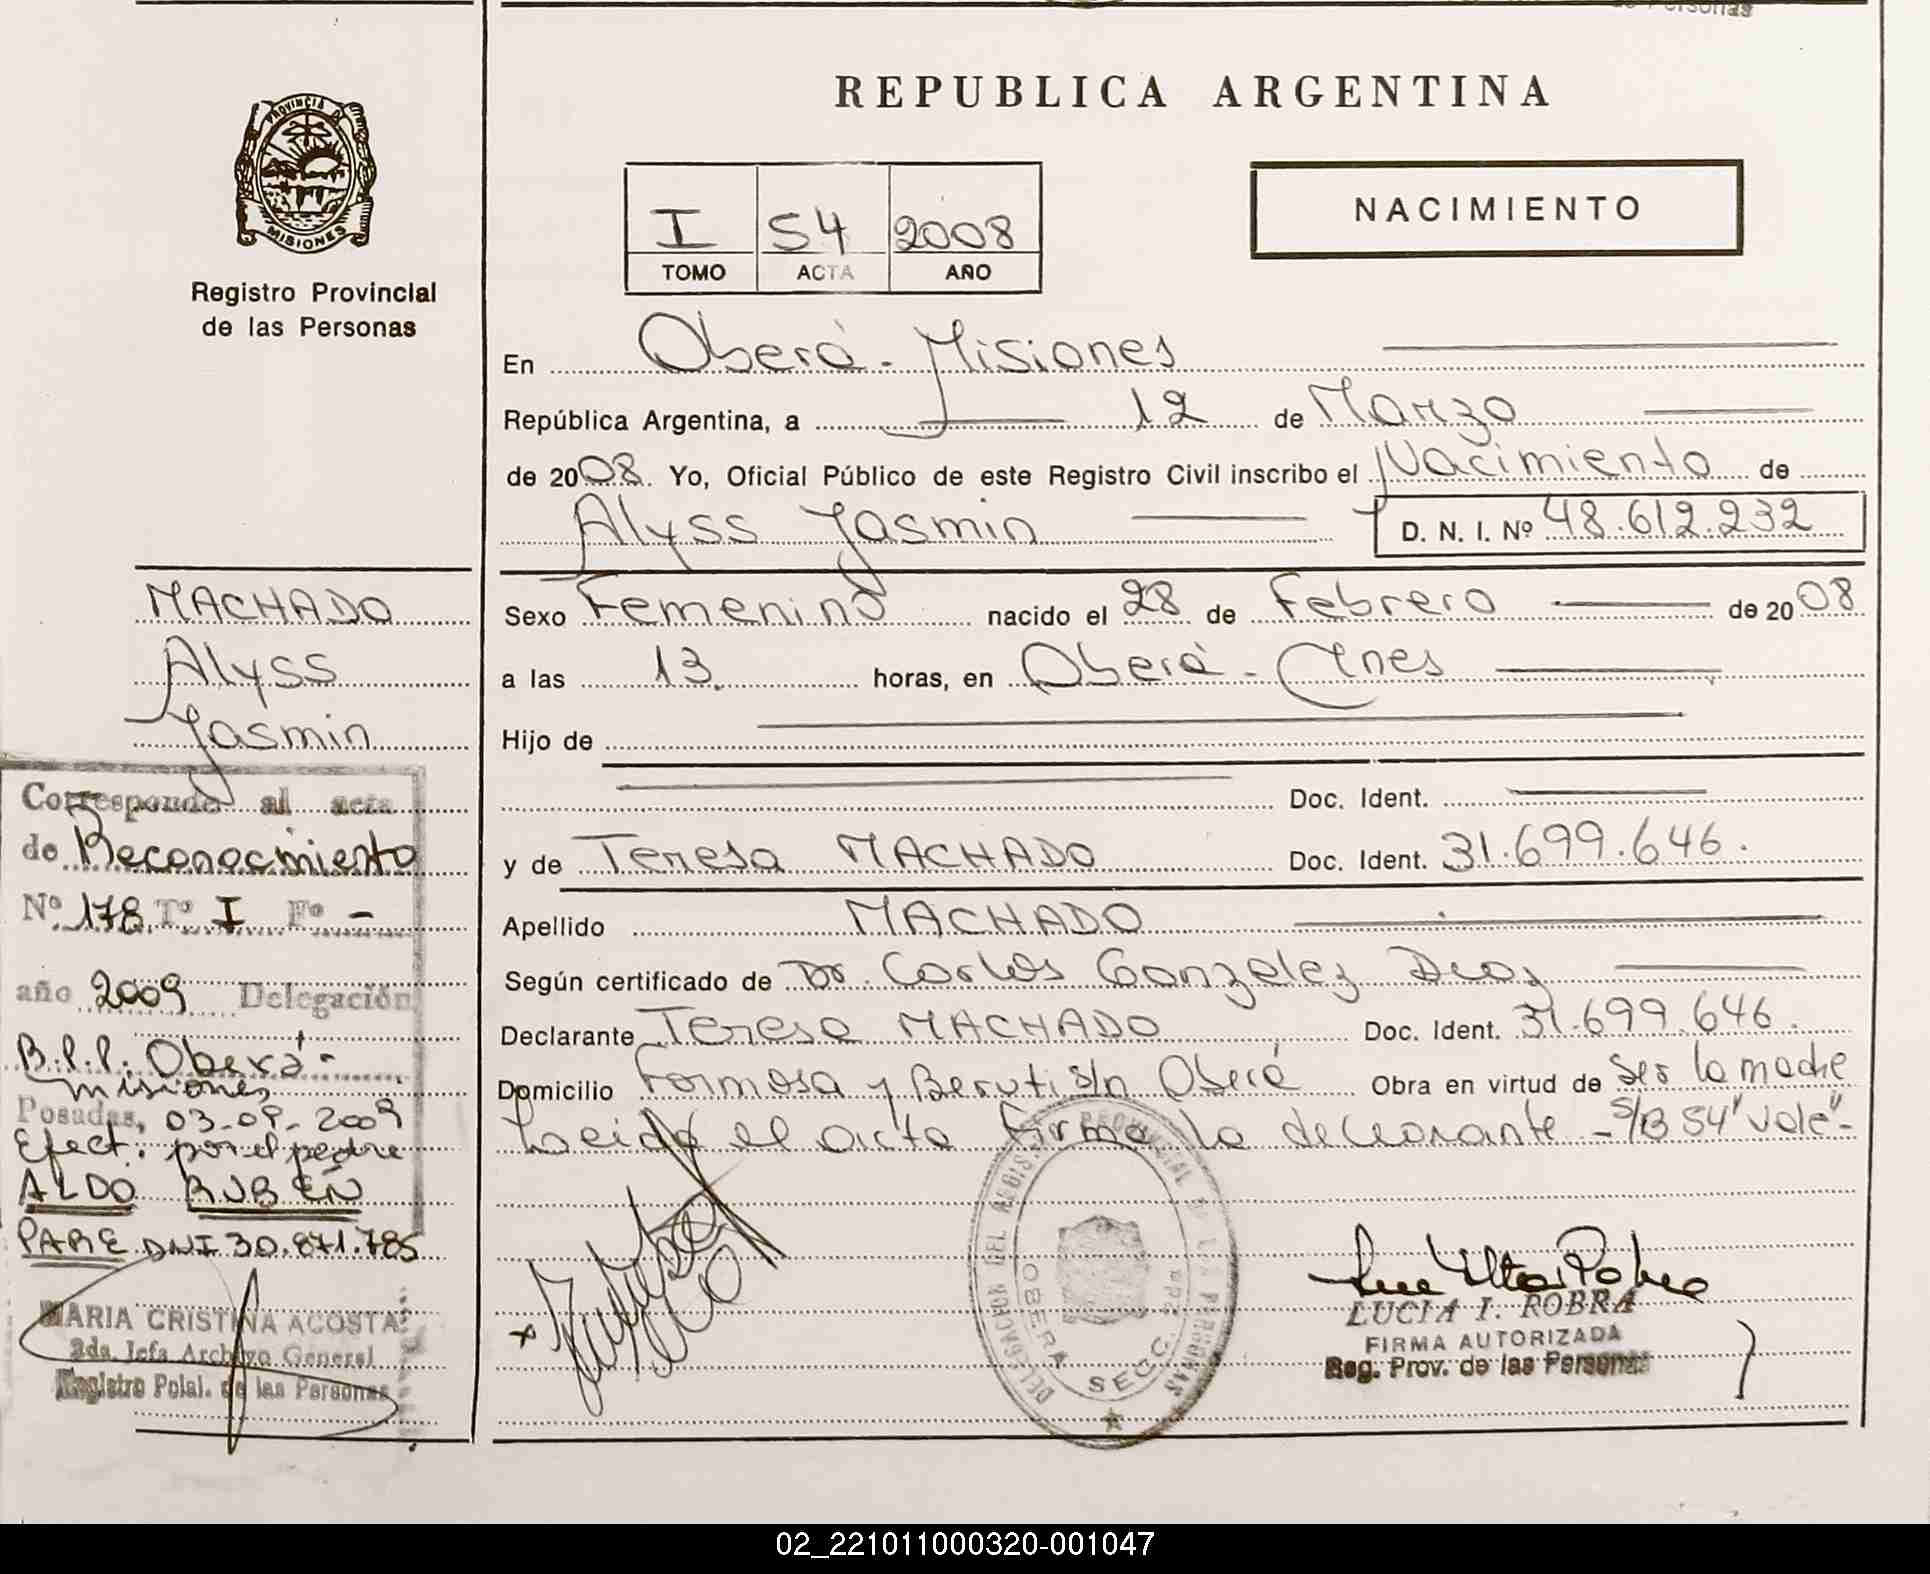 de Personas
REPUBLICA ARGENTINA
PROVINCIA DE
MISIONES
Registro Provincial
de las Personas
I 54 2008
TOMO ACTA AÑO
NACIMIENTO
En Oberá - Misiones
República Argentina, a 12 de Marzo
de 2008. Yo, Oficial Público de este Registro Civil inscribo el Nacimiento de
Alyss Yasmin D. N. I. Nº 48.612.232
Sexo Femenino nacido el 28 de Febrero de 2008
a las 13 horas, en Oberá - Mnes
Hijo de
Doc. Ident.
y de Teresa MACHADO Doc. Ident. 31.699.646.
Apellido MACHADO
Según certificado de Dr. Carlos Gonzalez Diaz
Declarante Teresa MACHADO Doc. Ident. 31.699.646.
Domicilio Formosa y Beruti s/n Oberá Obra en virtud de ser la madre
Leida el acta firma la declarante - S/B 54 "Vale" -
DELEGACION DEL REGIS. PROVINCIAL DE LAS PERSONAS
OBERA
SECC.
LUCIA I. ROBRA
FIRMA AUTORIZADA
Reg. Prov. de las Personas
MACHADO
Alyss
Yasmin
Corresponde al acta
de Reconocimiento
Nº 178 Tº I Fº -
año 2009 Delegación
B.P.P. Oberá -
Misiones
Posadas, 03-09-2009
Efect. por el padre
ALDO RUBEN
PARE DNI 30.871.785
MARIA CRISTINA ACOSTA
2da. Jefa Archivo General
Registro Pcial. de las Personas
02_221011000320-001047